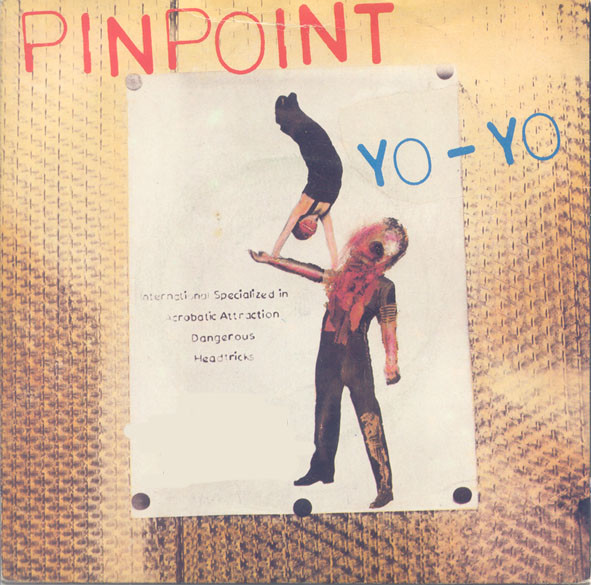 PINPOINT
YO-YO
International Specialized in
Acrobatic Attraction
Dangerous
Headtricks